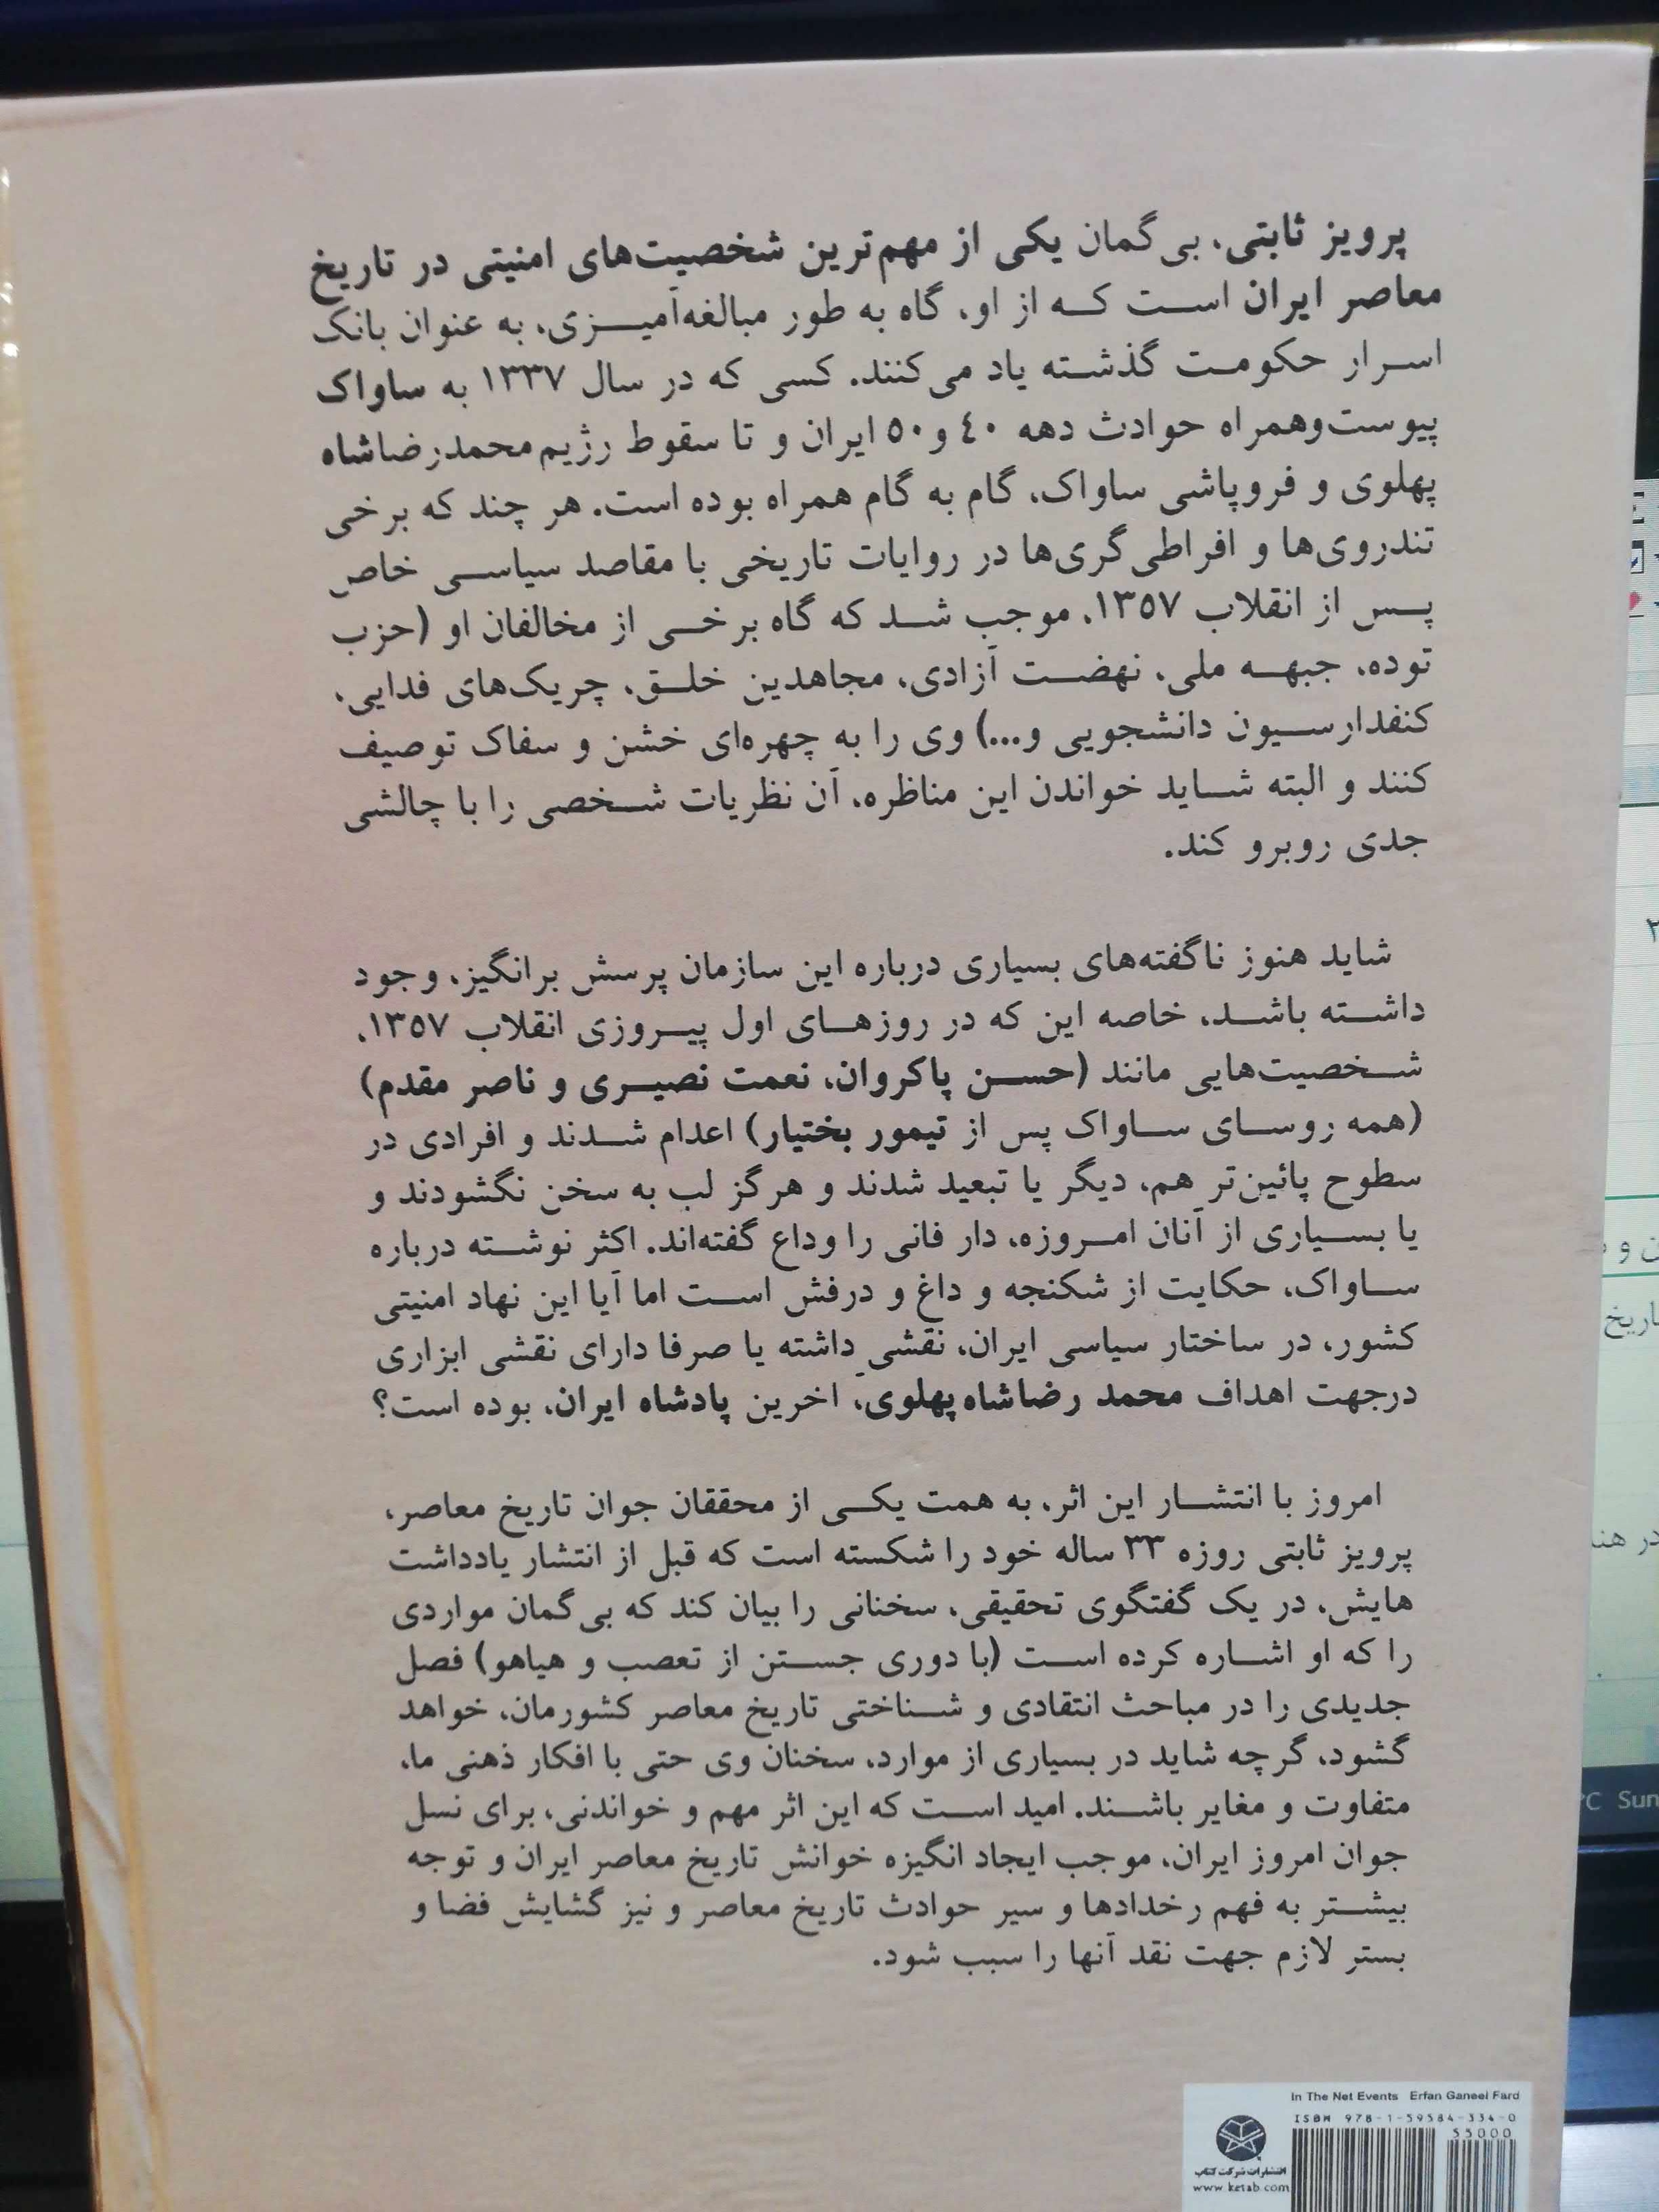 پرویز ثابتی، بی‌گمان یکی از مهم‌ترین شخصیت‌های امنیتی در تاریخ
معاصر ایران است که از او، گاه به طور مبالغه‌آمیزی، به عنوان بانک
اسرار حکومت گذشته یاد می‌کنند. کسی که در سال ۱۳۳۷ به ساواک
پیوست‌وهمراه حوادث دهه ۴۰ و ۵۰ ایران و تا سقوط رژیم محمدرضاشاه
پهلوی و فروپاشی ساواک، گام به گام همراه بوده است. هر چند که برخی
تندروی‌ها و افراطی‌گری‌ها در روایات تاریخی با مقاصد سیاسی خاص
پس از انقلاب ۱۳۵۷، موجب شد که گاه برخی از مخالفان او (حزب
توده، جبهه ملی، نهضت آزادی، مجاهدین خلق، چریک‌های فدایی،
کنفدارسیون دانشجویی و...) وی را به چهره‌ای خشن و سفاک توصیف
کنند و البته شاید خواندن این مناظره، آن نظریات شخصی را با چالشی
جدی روبرو کند.
شاید هنوز ناگفته‌های بسیاری درباره این سازمان پرسش برانگیز، وجود
داشته باشد، خاصه این که در روزهای اول پیروزی انقلاب ۱۳۵۷،
شخصیت‌هایی مانند (حسن پاکروان، نعمت نصیری و ناصر مقدم)
(همه روسای ساواک پس از تیمور بختیار) اعدام شدند و افرادی در
سطوح پائین‌تر هم، دیگر یا تبعید شدند و هرگز لب به سخن نگشودند و
یا بسیاری از آنان امروزه، دار فانی را وداع گفته‌اند. اکثر نوشته درباره
ساواک، حکایت از شکنجه و داغ و درفش است اما آیا این نهاد امنیتی
کشور، در ساختار سیاسی ایران، نقشی داشته یا صرفا دارای نقشی ابزاری
درجهت اهداف محمد رضاشاه پهلوی، آخرین پادشاه ایران، بوده است؟
امروز با انتشار این اثر، به همت یکی از محققان جوان تاریخ معاصر،
پرویز ثابتی روزه ۳۳ ساله خود را شکسته است که قبل از انتشار یادداشت
هایش، در یک گفتگوی تحقیقی، سخنانی را بیان کند که بی‌گمان مواردی
را که او اشاره کرده است (با دوری جستن از تعصب و هیاهو) فصل
جدیدی را در مباحث انتقادی و شناختی تاریخ معاصر کشورمان، خواهد
گشود، گرچه شاید در بسیاری از موارد، سخنان وی حتی با افکار ذهنی ما،
متفاوت و مغایر باشند. امید است که این اثر مهم و خواندنی، برای نسل
جوان امروز ایران، موجب ایجاد انگیزه خوانش تاریخ معاصر ایران و توجه
بیشتر به فهم رخدادها و سیر حوادث تاریخ معاصر و نیز گشایش فضا و
بستر لازم جهت نقد آنها را سبب شود.
In The Net Events Erfan Ganeei Fard
ISBN 978-1-59584-334-0
55000
انتشارات شرکت کتاب
www.ketab.com